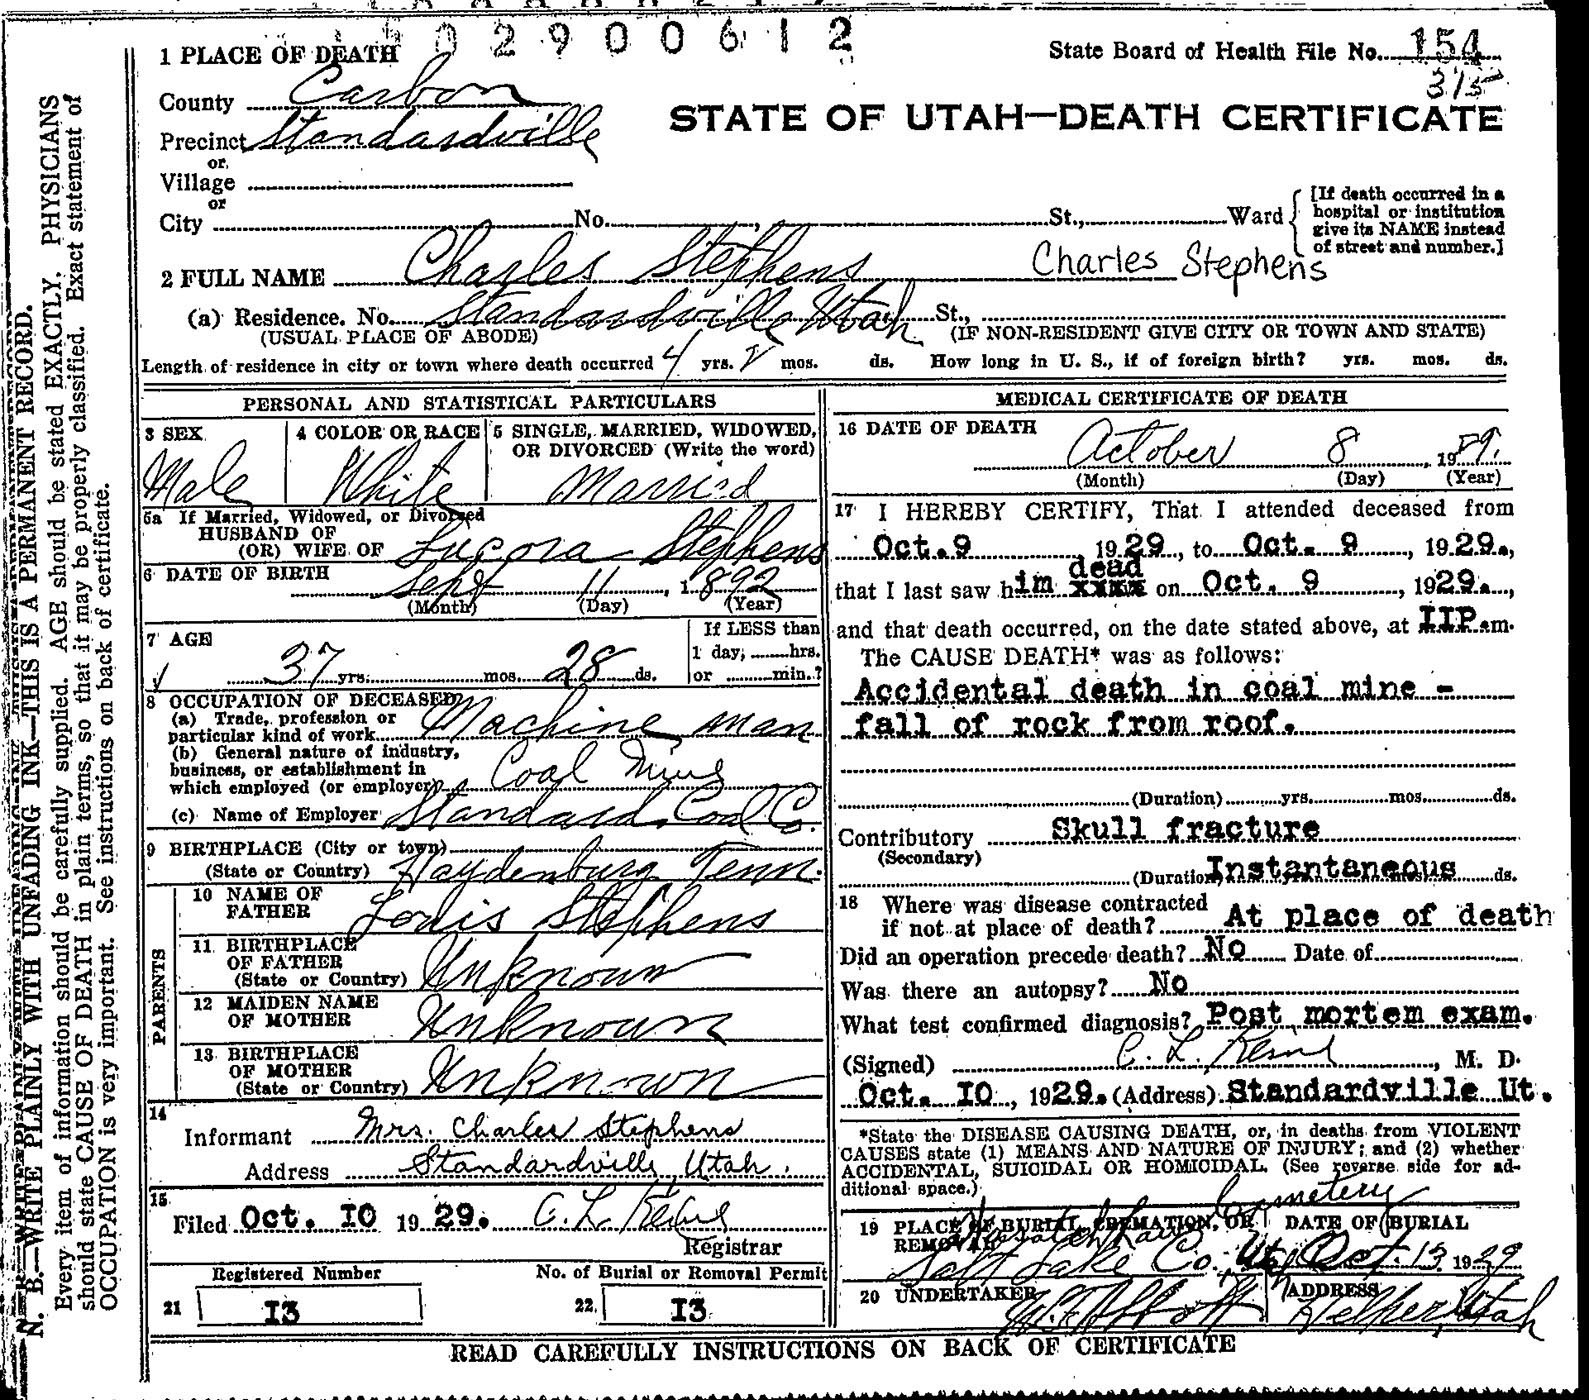 02900612
1 PLACE OF DEATH
State Board of Health File No. 154
315
County Carbon
STATE OF UTAH—DEATH CERTIFICATE
Precinct Standardville
or
Village
or
City No. , St., Ward
[If death occurred in a
hospital or institution
give its NAME instead
of street and number.]
2 FULL NAME Charles Stephens Charles Stephens
(a) Residence. No. Standardville Utah St.,
(USUAL PLACE OF ABODE) (IF NON-RESIDENT GIVE CITY OR TOWN AND STATE)
Length of residence in city or town where death occurred 4 yrs. mos. ds. How long in U. S., if of foreign birth? yrs. mos. ds.
PERSONAL AND STATISTICAL PARTICULARS
3 SEX 4 COLOR OR RACE 5 SINGLE, MARRIED, WIDOWED,
OR DIVORCED (Write the word)
Male White Married
5a If Married, Widowed, or Divorced
HUSBAND OF
(OR) WIFE OF Lucora Stephens
6 DATE OF BIRTH Sept 11, 1892
(Month) (Day) (Year)
7 AGE If LESS than
1 day, hrs.
37 yrs. mos. 28 ds. or min.?
8 OCCUPATION OF DECEASED
(a) Trade, profession or
particular kind of work Machine man
(b) General nature of industry,
business, or establishment in
which employed (or employer) Coal Mine
(c) Name of Employer Standard Coal Co.
9 BIRTHPLACE (City or town)
(State or Country) Haydenburg Tenn.
PARENTS
10 NAME OF
FATHER Louis Stephens
11 BIRTHPLACE
OF FATHER
(State or Country) Unknown
12 MAIDEN NAME
OF MOTHER Unknown
13 BIRTHPLACE
OF MOTHER
(State or Country) Unknown
14
Informant Mrs. Charles Stephens
Address Standardville, Utah.
15
Filed Oct. IO 1929. C. L.
Registrar
Registered Number No. of Burial or Removal Permit
21 I3 22. I3
MEDICAL CERTIFICATE OF DEATH
16 DATE OF DEATH
October 8, 1929.
(Month) (Day) (Year)
17 I HEREBY CERTIFY, That I attended deceased from
Oct.9, 1929., to Oct. 9, 1929.,
dead
that I last saw him xxxx on Oct. 9, 1929.,
and that death occurred, on the date stated above, at IIP.m.
The CAUSE DEATH* was as follows:
Accidental death in coal mine -
fall of rock from roof.
(Duration) yrs. mos. ds.
Contributory Skull fracture
(Secondary)
(Duration) Instantaneous ds.
18 Where was disease contracted
if not at place of death? At place of death
Did an operation precede death? No Date of
Was there an autopsy? No
What test confirmed diagnosis? Post mortem exam.
(Signed) C. L. , M. D.
Oct. IO, 1929. (Address) Standardville Ut.
*State the DISEASE CAUSING DEATH, or, in deaths from VIOLENT
CAUSES state (1) MEANS AND NATURE OF INJURY; and (2) whether
ACCIDENTAL, SUICIDAL OR HOMICIDAL. (See reverse side for ad-
ditional space.)
Cemetery
19 PLACE OF BURIAL, CREMATION, OR DATE OF BURIAL
REMOVAL Wasatch Lawn
Salt Lake Co. Ut. Oct. 13 1929
20 UNDERTAKER ADDRESS
Helper, Utah
READ CAREFULLY INSTRUCTIONS ON BACK OF CERTIFICATE
N. B.—WRITE PLAINLY WITH UNFADING INK—THIS IS A PERMANENT RECORD.
Every item of information should be carefully supplied. AGE should be stated EXACTLY. PHYSICIANS
should state CAUSE OF DEATH in plain terms, so that it may be properly classified. Exact statement of
OCCUPATION is very important. See instructions on back of certificate.